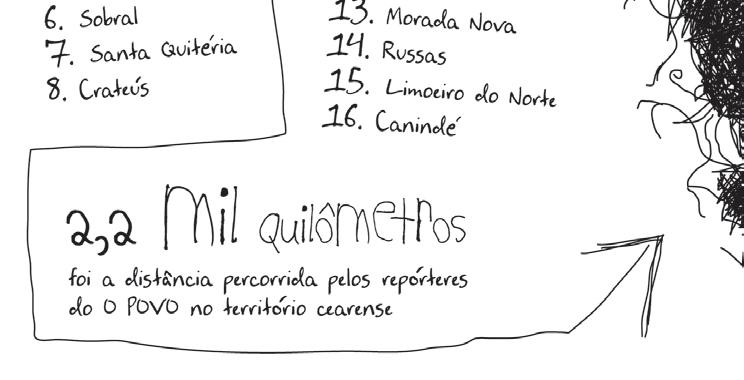 6. Sobral
7. Santa Quitéria
8. Crateús
13. Morada Nova
14. Russas
15. Limoeiro do Norte
16. Canindé
2,2 Mil quilômetros
foi a distância percorrida pelos repórteres
do O POVO no território cearense